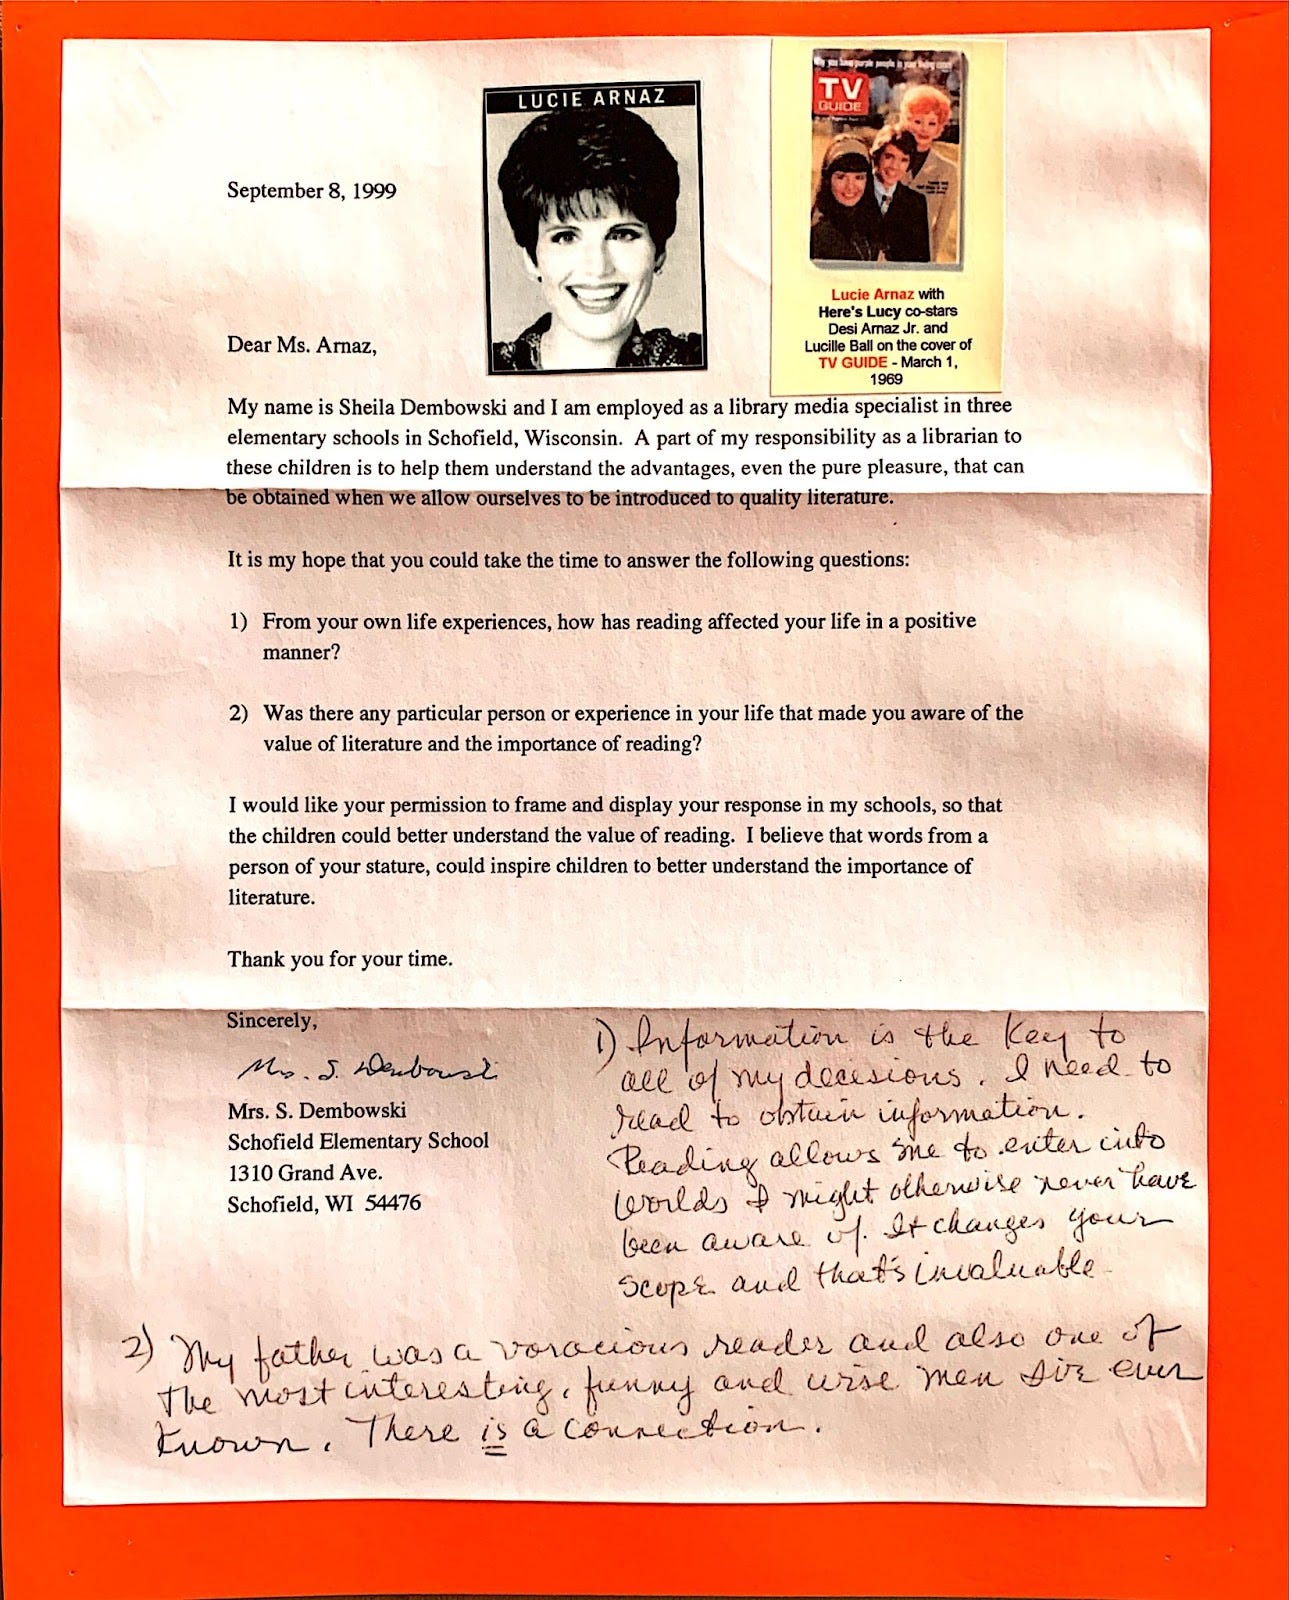 LUCIE ARNAZ
Why you have purple people in your living room
TV
GUIDE
Lucie Arnaz with
Here's Lucy co-stars
Desi Arnaz Jr. and
Lucille Ball on the cover of
TV GUIDE - March 1,
1969
September 8, 1999
Dear Ms. Arnaz,
My name is Sheila Dembowski and I am employed as a library media specialist in three
elementary schools in Schofield, Wisconsin.  A part of my responsibility as a librarian to
these children is to help them understand the advantages, even the pure pleasure, that can
be obtained when we allow ourselves to be introduced to quality literature.
It is my hope that you could take the time to answer the following questions:
1) From your own life experiences, how has reading affected your life in a positive
manner?
2) Was there any particular person or experience in your life that made you aware of the
value of literature and the importance of reading?
I would like your permission to frame and display your response in my schools, so that
the children could better understand the value of reading.  I believe that words from a
person of your stature, could inspire children to better understand the importance of
literature.
Thank you for your time.
Sincerely,
Mrs. S. Dembowski
Mrs. S. Dembowski
Schofield Elementary School
1310 Grand Ave.
Schofield, WI  54476
1) Information is the key to
all of my decisions. I need to
read to obtain information.
Reading allows me to enter into
worlds I might otherwise never have
been aware of. It changes your
scope and that's invaluable.
2) My father was a voracious reader and also one of
the most interesting, funny and wise men I've ever
known. There is a connection.